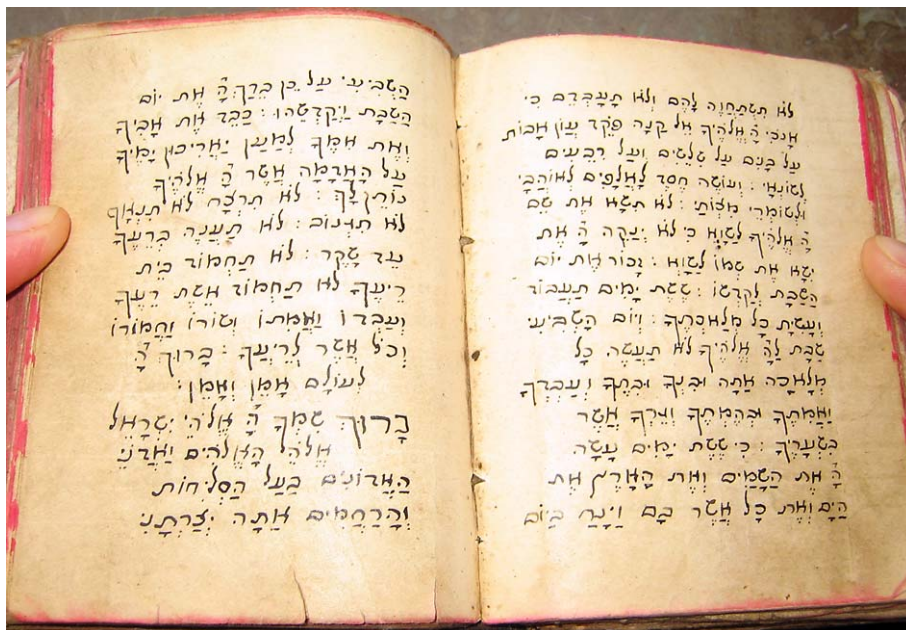 לֹא תִשְׁתַּחֲוֶה לָהֶם וְלֹא תָעָבְדֵם כִּי
אָנֹכִי הָ אֱלֹהֶיךָ אֵל קַנָּה פֹּקֵד עֲוֹן אָבוֹת
עַל בָּנִים עַל שִׁלֵּשִׁים וְעַל רִבֵּעִים
לְשׂוֹנְאָי׃ וְעוֹשֶׂה חֶסֶד לָאֲלָפִים לְאוֹהֲבַי
וּלְשׁוֹמְרֵי מִצְוֹתַי׃ לֹא תִשָּׂא אֶת שֵׁם
הָ אֱלֹהֶיךָ לַשָּׁוְא כִּי לֹא יְנַקֶּה הָ אֶת
יִשָּׂא אֶת שְׁמוֹ לַשָּׁוְא׃ זָכוֹר אֶת יוֹם
הַשַּׁבָּת לְקַדְּשׁוֹ׃ שֵׁשֶׁת יָמִים תַּעֲבוֹד
וְעָשִׂיתָ כָל מְלַאכְתֶּךָ׃ וְיוֹם הַשְּׁבִיעִי
שַׁבָּת לַהָ אֱלֹהֶיךָ לֹא תַעֲשֶׂה כָל
מְלָאכָה אַתָּה וּבִנְךָ וּבִתֶּךָ וְעַבְדְּךָ
וַאֲמָתְךָ וּבְהֶמְתֶּךָ וְגֵרְךָ אֲשֶׁר
בִּשְׁעָרֶיךָ׃ כִּי שֵׁשֶׁת יָמִים עָשָׂה
הָ אֶת הַשָּׁמַיִם וְאֶת הָאָרֶץ אֶת
הַיָּם וְאֶת כָּל אֲשֶׁר בָּם וַיָּנַח בַּיּוֹם
הַשְּׁבִיעִי עַל כֵּן בֵּרַךְ הָ אֶת יוֹם
הַשַּׁבָּת וַיְקַדְּשֵׁהוּ׃ כַּבֵּד אֶת אָבִיךָ
וְאֶת אִמֶּךָ לְמַעַן יַאֲרִיכוּן יָמֶיךָ
עַל הָאֲדָמָה אֲשֶׁר הָ אֱלֹהֶיךָ
נוֹתֵן לָךְ׃ לֹא תִרְצָח לֹא תִנְאָף
לֹא תִגְנוֹב׃ לֹא תַעֲנֶה בְרֵעֲךָ
עֵד שָׁקֶר׃ לֹא תַחְמוֹד בֵּית
רֵיעֶךָ לֹא תַחְמוֹד אֵשֶׁת רֵעֶךָ
וְעַבְדּוֹ וַאֲמָתוֹ וְשׁוֹרוֹ וַחֲמוֹרוֹ
וְכֹל אֲשֶׁר לְרֵיעֶךָ׃ בָּרוּךְ הָ
לְעוֹלָם אָמֵן וְאָמֵן׃
בָּרוּךְ שִׁמְךָ הָ אֱלֹהֵי יִשְׂרָאֵל
אֱלֹהֵי הָאֱלֹהִים וַאֲדֹנֵי
הָאֲדוֹנִים בַּעַל הַסְּלִיחוֹת
וְהָרַחֲמִים אַתָּה יְצַרְתָּנִי